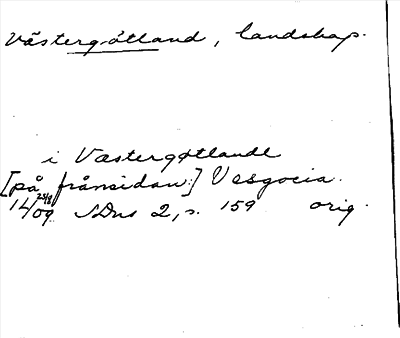 Västergötland, landskap.
i Væstergøtlandl
[på frånsidan:] Vesgocia.
14 25/8 09 SDns 2, s. 159 orig.